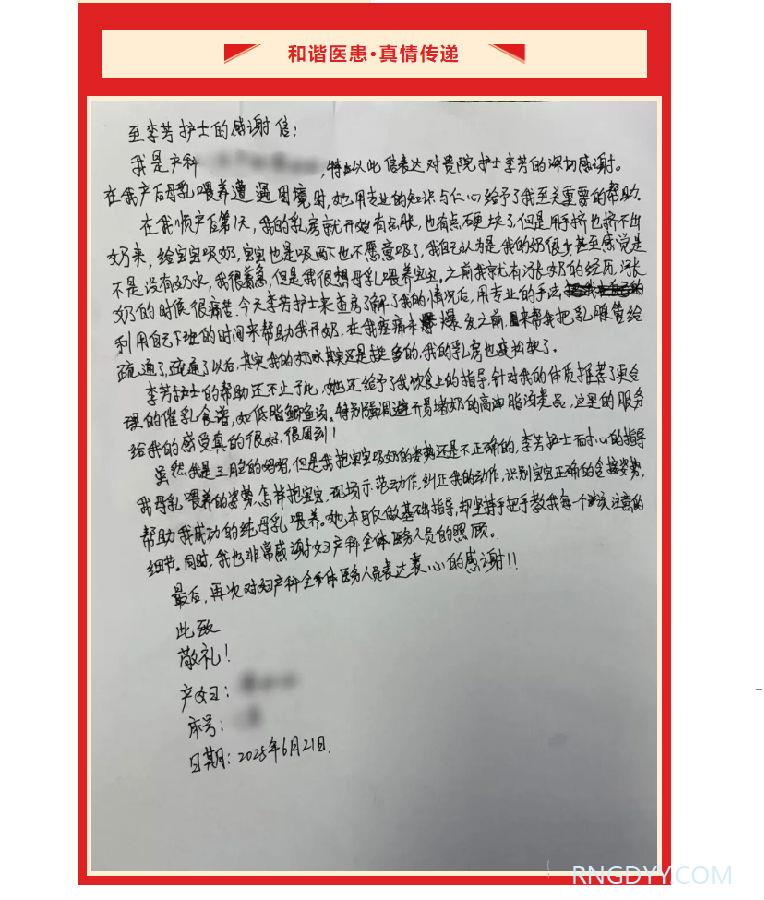 和谐医患·真情传递
至李芳护士的感谢信:
我是产科,特以此信表达对贵院护士李芳的深切感谢。
在我产后母乳喂养遭遇困境时,她用专业的知识与仁心给予了我至关重要的帮助。
在我顺产后第1天,我的乳房就开始有点胀,也有点硬块了,但是用手挤也挤不出
奶来,给宝宝吸奶,宝宝也是吸两下也不愿意吸了,我自己认为是我的奶很少,甚至感觉是
不是没有奶水,我很着急,但是我很想母乳喂养宝宝。之前我就有过涨奶的经历,涨
奶的时候很痛苦,今天李芳护士来查房了解了我的情况后,用专业的手法,
利用自己下班的时间来帮助我开奶,在我疼痛未爆发之前,来帮我把乳腺管给
疏通了,疏通了以后,其实我的奶水其实还是挺多的,我的乳房也疲软了。
李芳护士的帮助还不止于此,她还给予了我饮食上的指导,针对我的体质推荐了更合
理的催乳食谱,如低脂鲫鱼汤。特别强调避开易堵奶的高油脂汤类品,这里的服务
给我的感受真的很好,很周到!
虽然我是三胎的妈妈,但是我抱宝宝吸奶的姿势还是不正确的,李芳护士耐心的指导
我母乳喂养的姿势,怎样抱宝宝,现场示范动作,纠正我的动作,识别宝宝正确的含接姿势,
帮助我成功的纯母乳喂养。她本可仅做基础指导,却坚持手把手教我每个应该注意的
细节。同时,我也非常感谢妇产科全体医务人员的照顾。
最后,再次对妇产科全体医务人员表达衷心的感谢!!
此致
敬礼!
产妇:
床号:
日期:2025年6月21日.
RNGDYY.COM